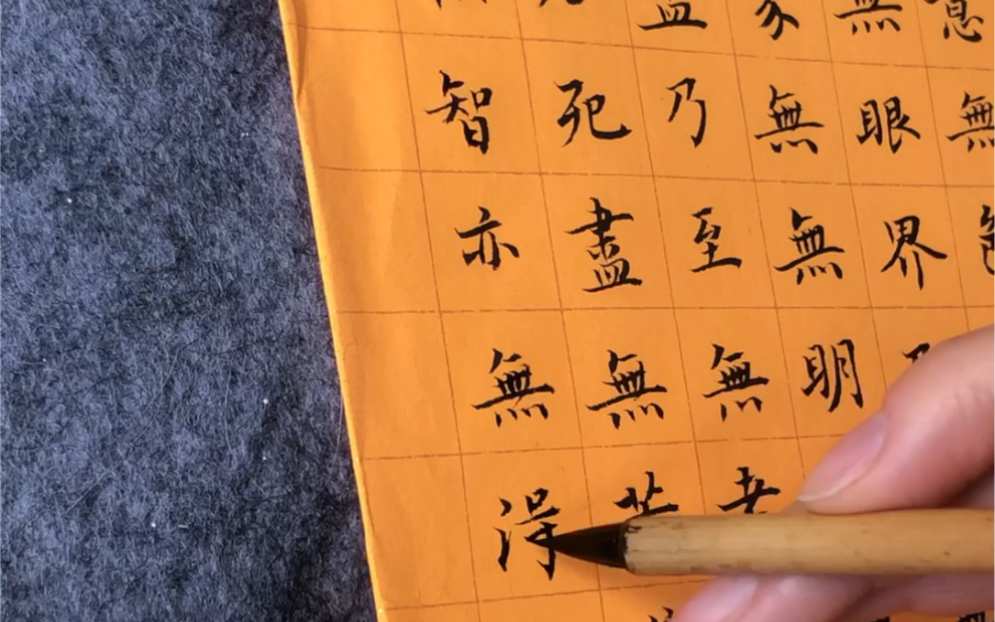 意無
無眼界
無無明
乃至無老
死盡無苦
智亦無得